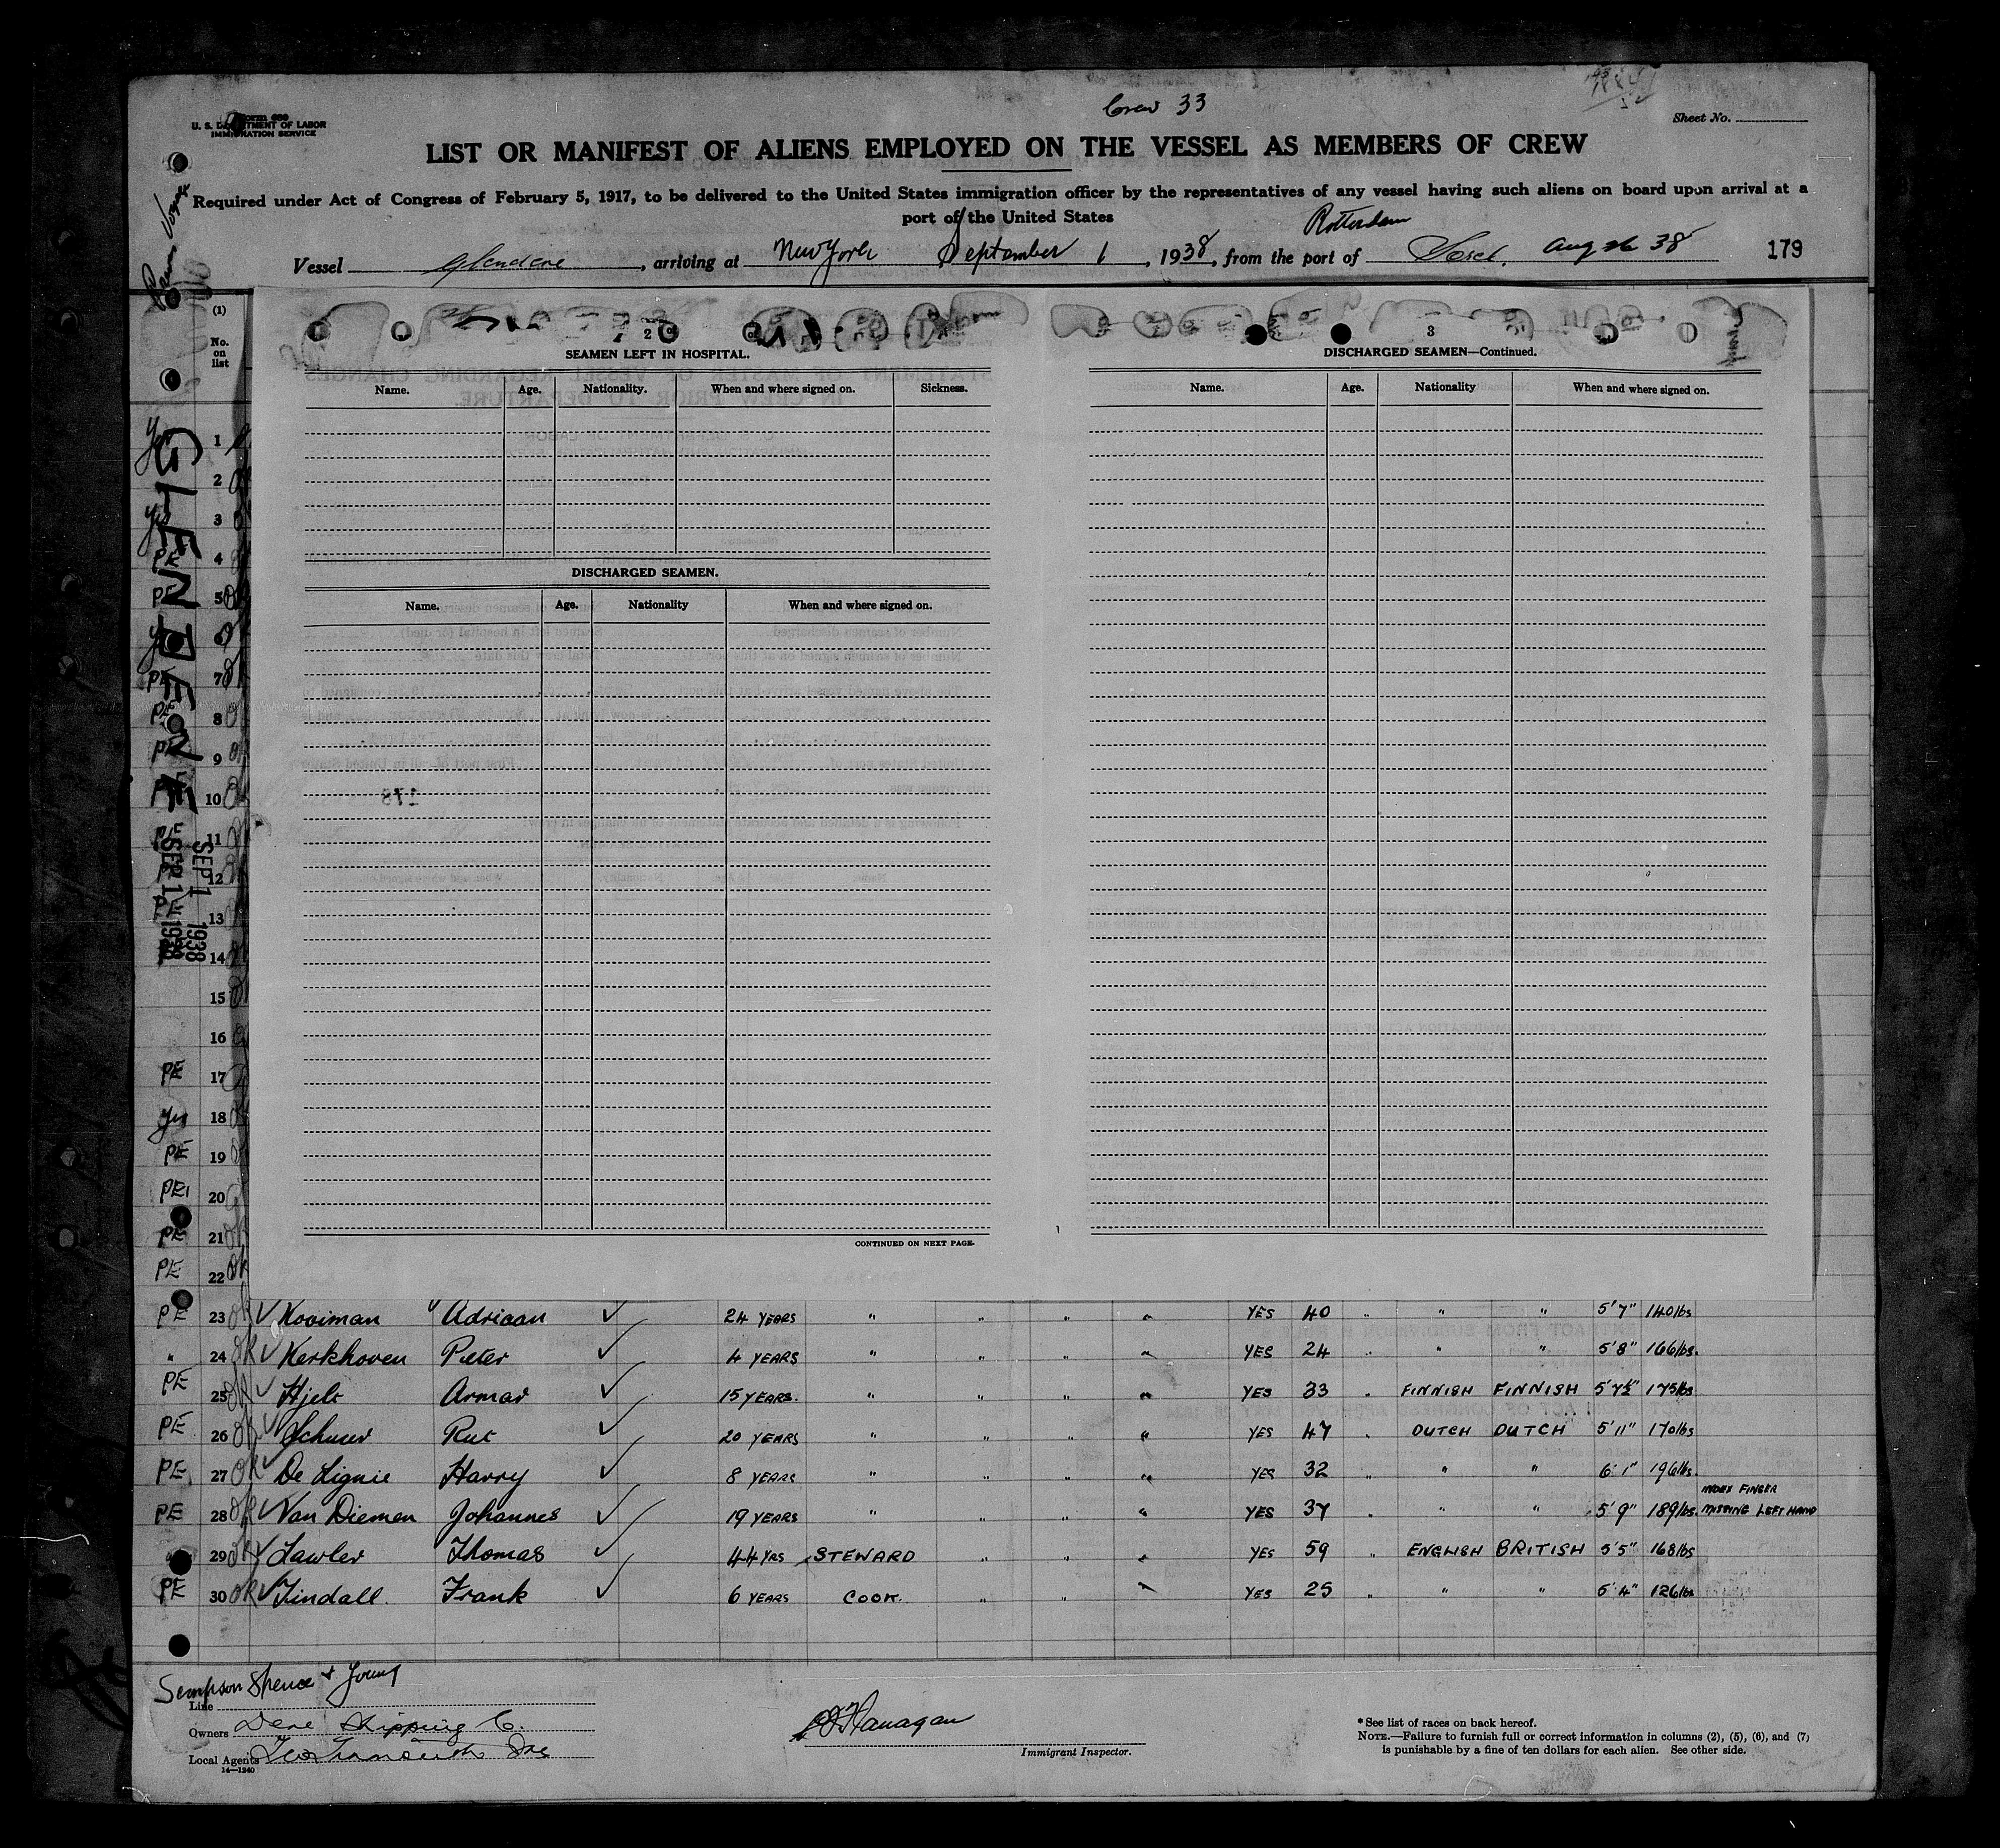 Crew 33
Form 689
U. S. DEPARTMENT OF LABOR
IMMIGRATION SERVICE
Sheet No.
LIST OR MANIFEST OF ALIENS EMPLOYED ON THE VESSEL AS MEMBERS OF CREW
Required under Act of Congress of February 5, 1917, to be delivered to the United States immigration officer by the representatives of any vessel having such aliens on board upon arrival at a
port of the United States
Rotterdam
Vessel Glendene, arriving at New York September 1, 1938, from the port of Sorel, Aug 26 38 179
(1)
No. on list
2
3
SEAMEN LEFT IN HOSPITAL.
Name. Age. Nationality. When and where signed on. Sickness.
DISCHARGED SEAMEN.
Name. Age. Nationality When and where signed on.
CONTINUED ON NEXT PAGE.
DISCHARGED SEAMEN—Continued.
Name. Age. Nationality When and where signed on.
yes 1
2
yes 3
PE 4
PE 5
6
PE 7
PE 8
PE 9
10
PE 11
PE 12
PE 13
14
15
16
PE 17
yes 18
PE 19
PE 20
PE 21
PE 22
SEP 1 1938
SEP 1 1938
PE 23 ok ✓ Kooiman Adriaan ✓ 24 YEARS " " " " YES 40 " " " 5'7" 140lbs
" 24 ok ✓ Kerkhoven Pieter ✓ 4 YEARS " " " " YES 24 " " " 5'8" 166lbs.
PE 25 ok ✓ Hjelt Armar ✓ 15 YEARS. " " " " YES 33 " FINNISH FINNISH 5'7½" 175lbs
PE 26 ok ✓ Schuur Rut ✓ 20 YEARS " " " " YES 47 " DUTCH DUTCH 5'11" 170lbs
PE 27 ok ✓ De Lignie Harry ✓ 8 YEARS " " " " YES 32 " " " 6'1" 196lbs.
PE 28 ok ✓ Van Diemen Johannes ✓ 19 YEARS " " " " YES 37 " " " 5'9" 189lbs. INDEX FINGER MISSING LEFT HAND
29 ok ✓ Lawler Thomas ✓ 44 YRS STEWARD " " " YES 59 " ENGLISH BRITISH 5'5" 168lbs
PE 30 ok ✓ Tindall Frank ✓ 6 YEARS COOK. " " " YES 25 " " " 5'4" 126lbs
Simpson Spence & Young
Line
Owners Dene Shipping Co.
Local Agents
14—1240
Flanagan
Immigrant Inspector.
* See list of races on back hereof.
NOTE.—Failure to furnish full or correct information in columns (2), (5), (6), and (7)
is punishable by a fine of ten dollars for each alien. See other side.